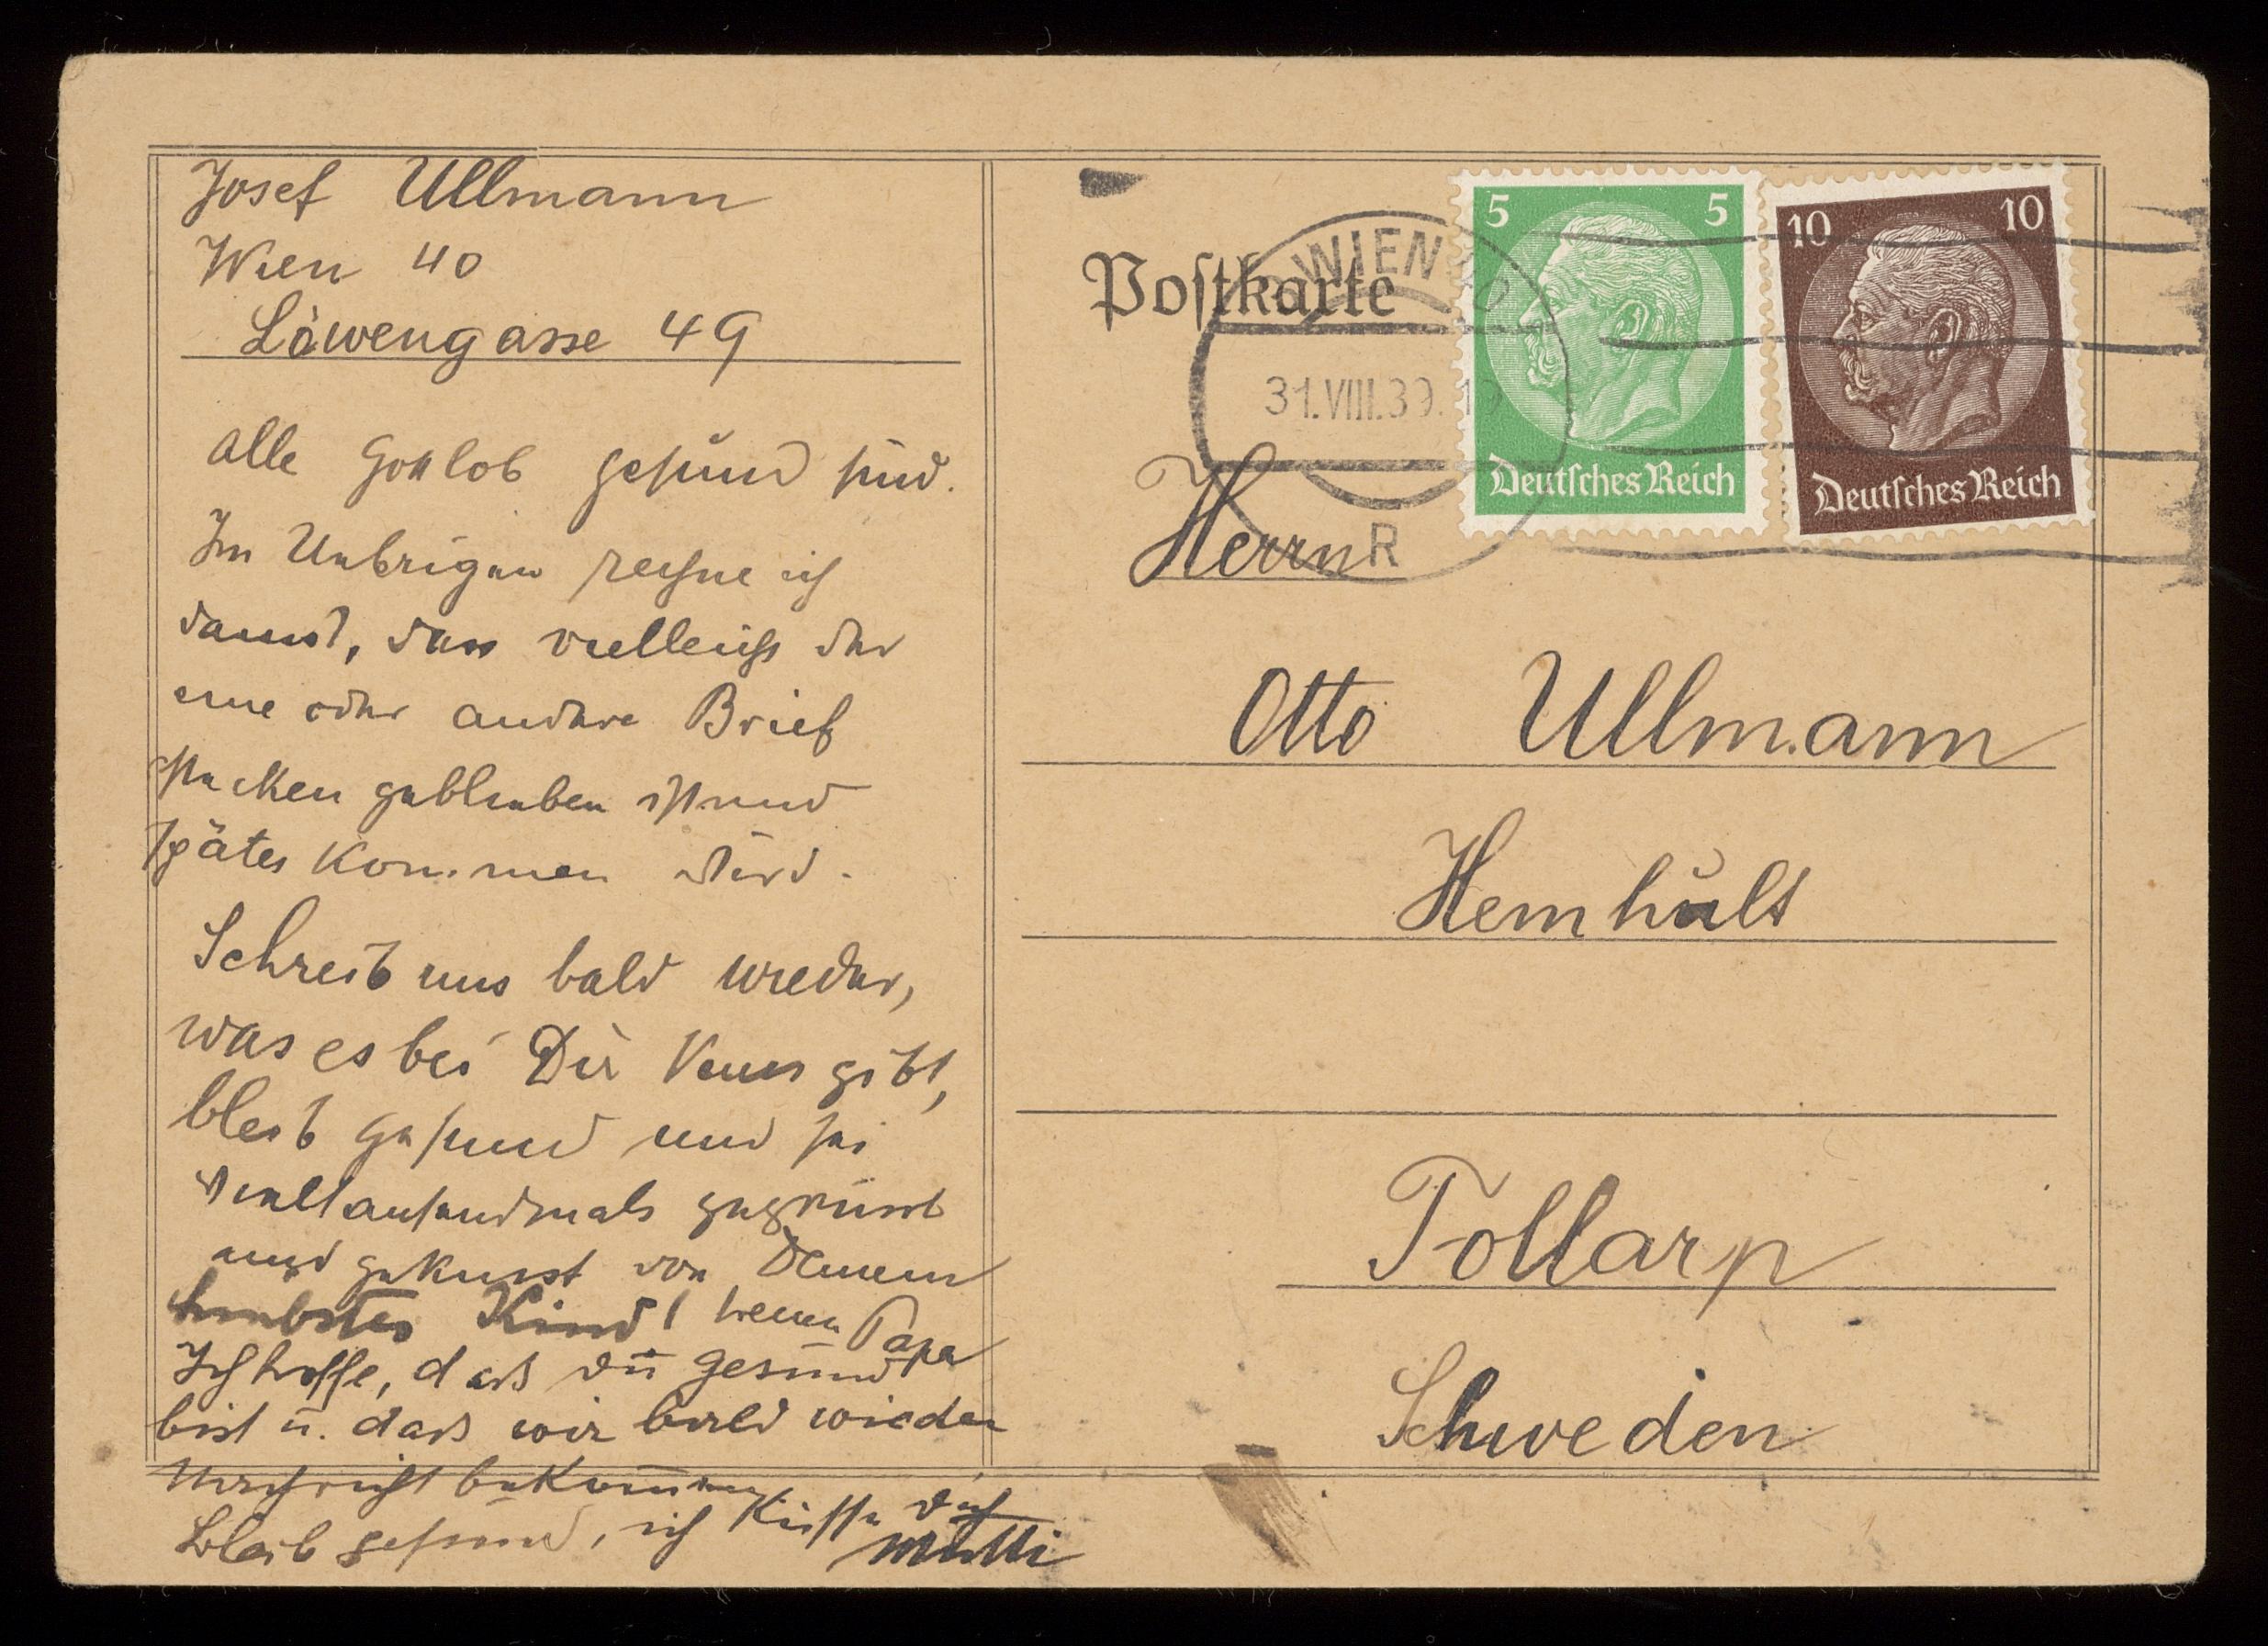 Josef Ullmann
Wien 40
Löwengasse 49
alle Gottlob gesund sind.
Im Uebrigen rechne ich
damit, dass vielleicht der
eine oder andere Brief
stecken geblieben ist und
später kommen wird.
Schreib uns bald wieder,
was es bei Dir Neues gibt,
bleib gesund und sei
vieltausendmals gegrüsst
und geküsst von Deinem
treuen Papa
Liebstes Kind!
Ich hoffe, daß du gesund
bist u. daß wir bald wieder
Nachricht bekommen.
Bleib gesund, ich küsse dich
Mutti
Postkarte
WIEN 40
31.VIII.39.19
R
5 5
Deutsches Reich
10 10
Deutsches Reich
Herrn
Otto Ullmann
Hemhult
Tollarp
Schweden